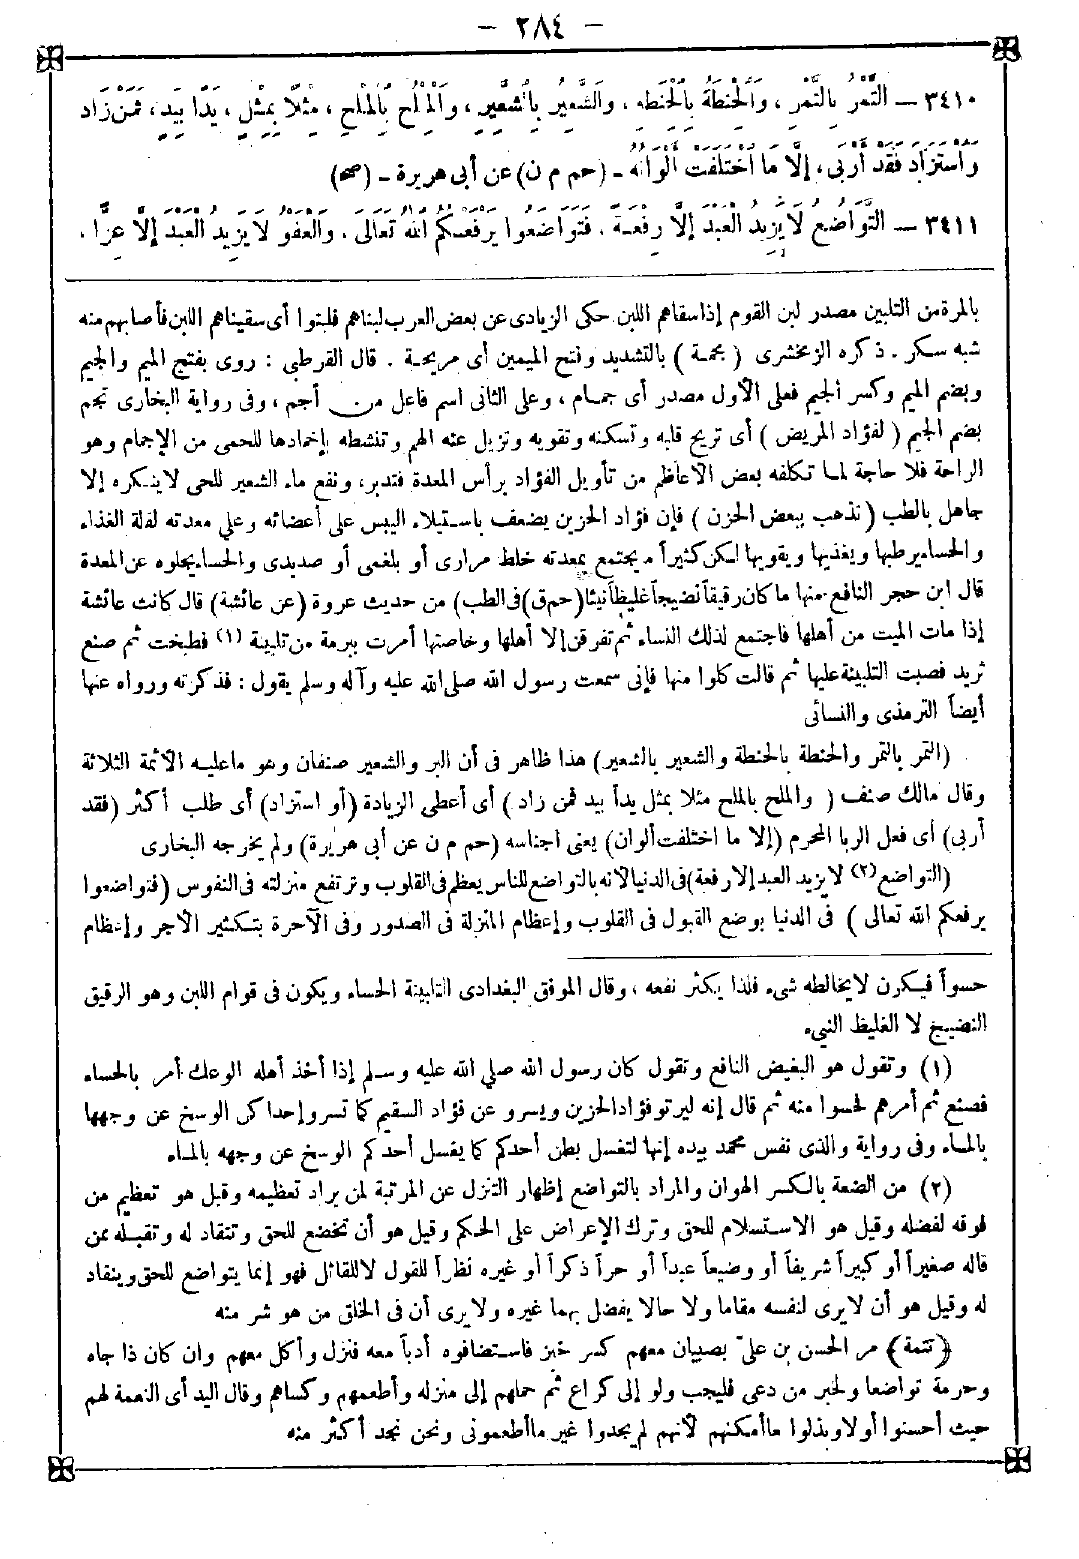 - ٢٨٤ -
٣٤١٠ — التَّمْرُ بِالتَّمْرِ ، وَالْحِنْطَةُ بِالْحِنْطَةِ ، وَالشَّعِيرُ بِالشَّعِيرِ ، وَالْمِلْحُ بِالْمِلْحِ ، مِثْلًا بِمِثْلٍ ، يَدًا بِيَدٍ ، فَمَنْ زَادَ
وَاسْتَزَادَ فَقَدْ أَرْبَى ، إِلَّا مَا اخْتَلَفَتْ أَلْوَانُهُ - (حم م ن) عن أبى هريرة - (صح)
٣٤١١ — التَّوَاضُعُ لَا يَزِيدُ الْعَبْدَ إِلَّا رِفْعَةً ، فَتَوَاضَعُوا يَرْفَعْكُمُ اللهُ تَعَالَى ، وَالْعَفْوُ لَا يَزِيدُ الْعَبْدَ إِلَّا عِزًّا ،
بالمرة من التلبين مصدر لبن القوم إذا سقاهم اللبن حكى الزيادى عن بعض العرب لبناهم فلبنوا أى سقيناهم اللبن فأصابهم منه
شبه سكر . ذكره الزمخشرى ( مجمة ) بالتشديد وفتح الميمين أى مريحة . قال القرطبي : روى بفتح الميم والجيم
وبضم الميم وكسر الجيم فعلى الأول مصدر أى جمام ، وعلى الثانى اسم فاعل من أجم ، وفى رواية البخارى تجم
بضم الجيم ( لفؤاد المريض ) أى تريح قلبه وتسكنه وتقويه وتزيل عنه الهم وتنشطه بإخمادها للحمى من الإجمام وهو
الراحة فلا حاجة لما تكلفه بعض الأعاظم من تأويل الفؤاد برأس المعدة فتدبر، ونفع ماء الشعير للحمى لا ينكره إلا
جاهل بالطب ( تذهب ببعض الحزن ) فإن فؤاد الحزين يضعف باستيلاء اليبس على أعضائه وعلى معدته لقلة الغذاء
والحساء يرطبها ويغذيها ويقويها لكن كثيراً ما يجتمع بمعدته خلط مرارى أو بلغمى أو صديدى والحساء يجلوه عن المعدة
قال ابن حجر النافع منها ما كان رقيقاً نضيجاً غليظاً نيئا (حم ق) فى الطب) من حديث عروة (عن عائشة) قال كانت عائشة
إذا مات الميت من أهلها فاجتمع لذلك النساء ثم تفرقن إلا أهلها وخاصتها أمرت ببرمة من تلبينة (١) فطبخت ثم صنع
ثريد فصبت التلبينة عليها ثم قالت كلوا منها فإنى سمعت رسول الله صلى الله عليه وآله وسلم يقول : فذكرته ورواه عنها
أيضاً الترمذى والنسائى
(التمر بالتمر والحنطة بالحنطة والشعير بالشعير) هذا ظاهر فى أن البر والشعير صنفان وهو ما عليه الأئمة الثلاثة
وقال مالك صنف ( والملح بالملح مثلا بمثل يداً بيد فمن زاد ) أى أعطى الزيادة (أو استزاد) أى طلب أكثر (فقد
أربى) أى فعل الربا المحرم (إلا ما اختلفت ألوان) يعنى أجناسه (حم م ن عن أبى هريرة) ولم يخرجه البخارى
(التواضع (٢) لا يزيد العبد إلا رفعة) فى الدنيا لأنه بالتواضع للناس يعظم فى القلوب وترتفع منزلته فى النفوس (فتواضعوا
يرفعكم الله تعالى ) فى الدنيا بوضع القبول فى القلوب وإعظام المنزلة فى الصدور وفى الآخرة بتكثير الأجر وإعظام
حسواً فيكون لا يخالطه شىء فلذا يكثر نفعه ، وقال الموفق البغدادى التلبينة الحساء ويكون فى قوام اللبن وهو الرقيق
النضيج لا الغليظ النىء
(١) وتقول هو البغيض النافع وتقول كان رسول الله صلى الله عليه وسلم إذا أخذ أهله الوعك أمر بالحساء
فصنع ثم أمرهم فحسوا منه ثم قال إنه ليرتو فؤاد الحزين ويسرو عن فؤاد السقيم كما تسرو إحداكن الوسخ عن وجهها
بالماء وفى رواية والذى نفس محمد بيده إنها لتغسل بطن أحدكم كما يغسل أحدكم الوسخ عن وجهه بالماء
(٢) من الضعة بالكسر الهوان والمراد بالتواضع إظهار التنزل عن المرتبة لمن يراد تعظيمه وقيل هو تعظيم من
فوقه لفضله وقيل هو الاستسلام للحق وترك الإعراض على الحكم وقيل هو أن تخضع للحق وتنقاد له وتقبله ممن
قاله صغيراً أو كبيراً شريفاً أو وضيعاً عبداً أو حراً ذكراً أو غيره نظراً للقول لا للقائل فهو إنما يتواضع للحق وينقاد
له وقيل هو أن لا يرى لنفسه مقاما ولا حالا يفضل بهما غيره ولا يرى أن فى الخلق من هو شر منه
(تتمة) مر الحسن بن علىّ بصبيان معهم كسر خبز فاستضافوه أدباً معه فنزل وأكل معهم وان كان ذا جاه
وحرمة تواضعا ولخبر من دعى فليجب ولو إلى كراع ثم حملهم إلى منزله وأطعمهم وكساهم وقال اليد أى النعمة لهم
حيث أحسنوا أولا وبذلوا ما أمكنهم لأنهم لم يجدوا غير ما أطعمونى ونحن نجد أكثر منه